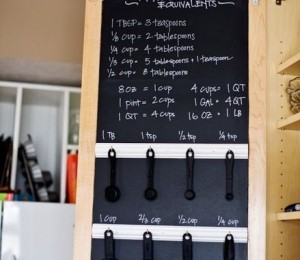 EQUIVALENTS
1 TBSP = 3 teaspoons
1/8 cup = 2 tablespoons
1/4 cup = 4 tablespoons
1/3 cup = 5 tablespoons + 1 teaspoon
1/2 cup = 8 tablespoons
8 oz = 1 cup 4 cups = 1 QT
1 pint = 2 cups 1 GAL = 4 QT
1 QT = 4 cups 16 oz = 1 LB
1 TB 1 tsp 1/2 tsp 1/4 tsp
1 cup 2/3 cup 1/2 cup 1/4 cup